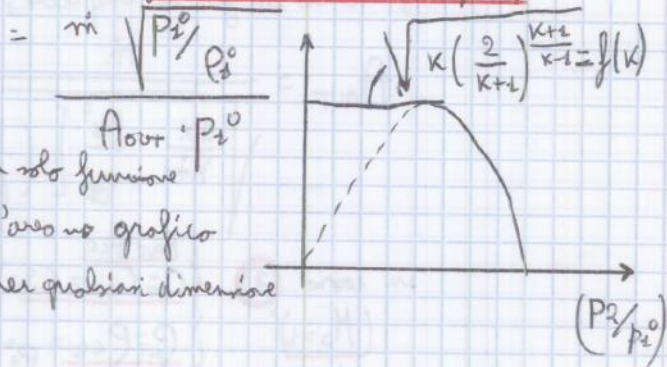 = ṁ √(P₁⁰/ρ₁⁰)
A_out · P₁⁰
√(κ(2/(κ+1))^((κ+1)/(κ-1))) = f(κ)
solo funzione
grafico
er qualsiasi dimensione
(P2/P₁⁰)